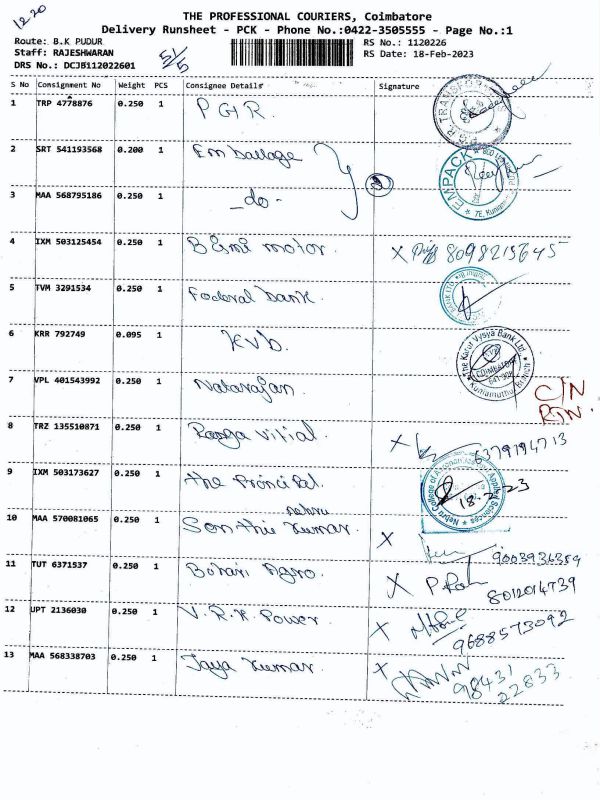 12.20
THE PROFESSIONAL COURIERS, Coimbatore
Delivery Runsheet - PCK - Phone No.:0422-3505555 - Page No.:1
Route: B.K PUDUR RS No.: 1120226
Staff: RAJESHWARAN RS Date: 18-Feb-2023
DRS No.: DCJB1122022601
S No Consignment No Weight PCS Consignee Details Signature
1 TRP 4778876 0.250 1 PGR.
2 SRT 541193568 0.200 1 Emballage
EMPACK
3 MAA 568795186 0.250 1 -do-
4 IXM 503125454 0.250 1 motor. X 8098215645
5 TVM 3291534 0.250 1 Federal bank.
6 KRR 792749 0.095 1 KVB.
The Karur Vysya Bank Ltd.
KVB
COIMBATORE
7 VPL 401543992 0.250 1 Natarajan.
C/N
RTN.
8 TRZ 135510871 0.250 1 X 6379194713
9 IXM 503173627 0.250 1 The Principal. 18-2-23
nehru
10 MAA 570081065 0.250 1 Senthil Kumar. X 9003936359
11 TUT 6371537 0.250 1 Agro. X 8012014739
12 UPT 2136030 0.250 1 V.R.K Power X 9688573092
13 MAA 568338703 0.250 1 Jaya Kumar. X 98431
22833